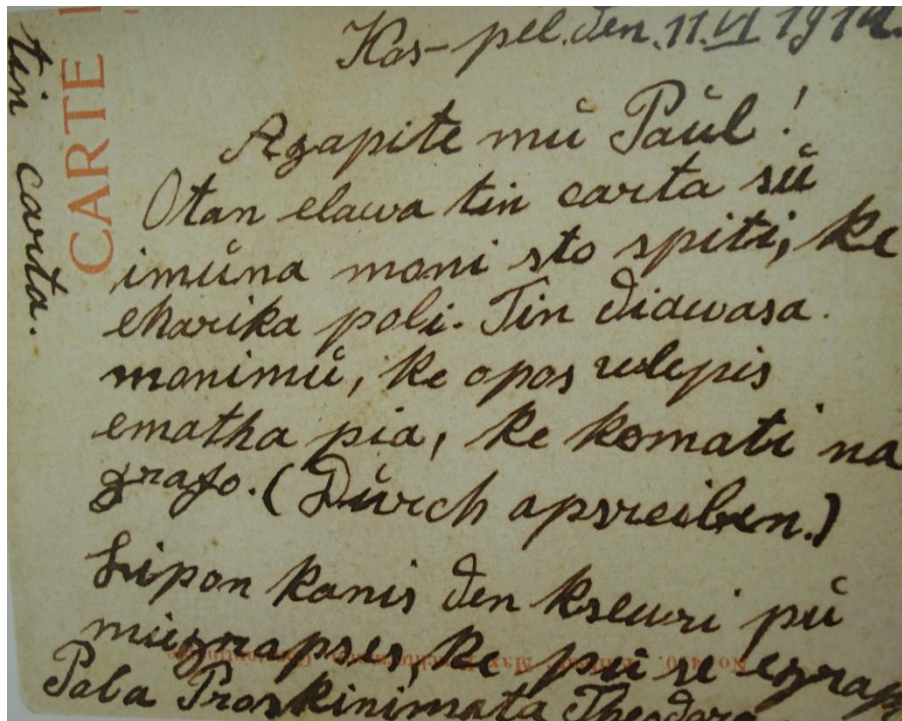 Kos-pel. den. 11. VI 1914.
Agapite mŭ Paŭl!
Otan elawa tin carta sŭ
imŭna moni sto spiti, ke
eharika poli. Tin diawasa.
monimŭ, ke opos wlepis
ematha pia, ke komati na
grafo. (Dŭrch apsreiben.)
Lipon kanis den kseuri pŭ
mŭgrapses, ke pŭ se egrap
Pola Proskinimata Theodora
tin carta.
CARTE